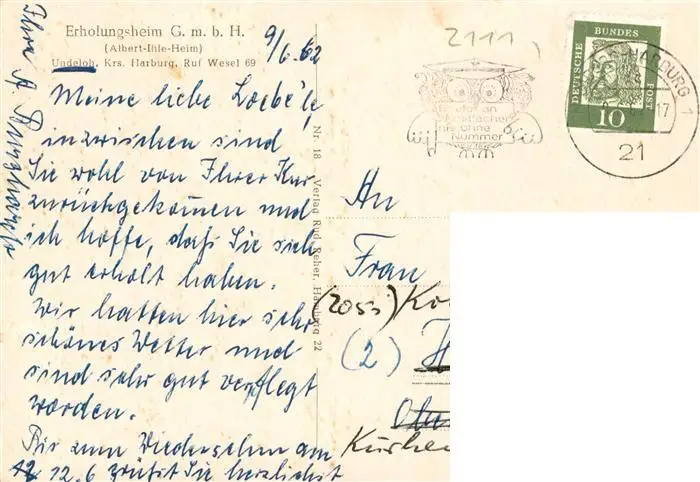 Erholungsheim G. m. b. H.
(Albert-Ihle-Heim)
Undeloh, Krs. Harburg, Ruf Wesel 69
9/6. 62
Meine liebe
inzwischen sind
Sie wohl von Ihrer Kur
zurückgekommen und
ich hoffe, daß Sie sich
gut erholt haben.
Wir hatten hier sehr
schönes Wetter und
sind sehr gut verpflegt
worden.
Bis zum Wiedersehen am
12.6 grüßt Sie herzlichst
Ihre A.
Nr. 18 Verlag Rud. Reher, Hamburg 22
2111
nie ohne
Nummer
DEUTSCHE
BUNDES
POST
10
HARBURG 1
17
21
An
Frau
(2)